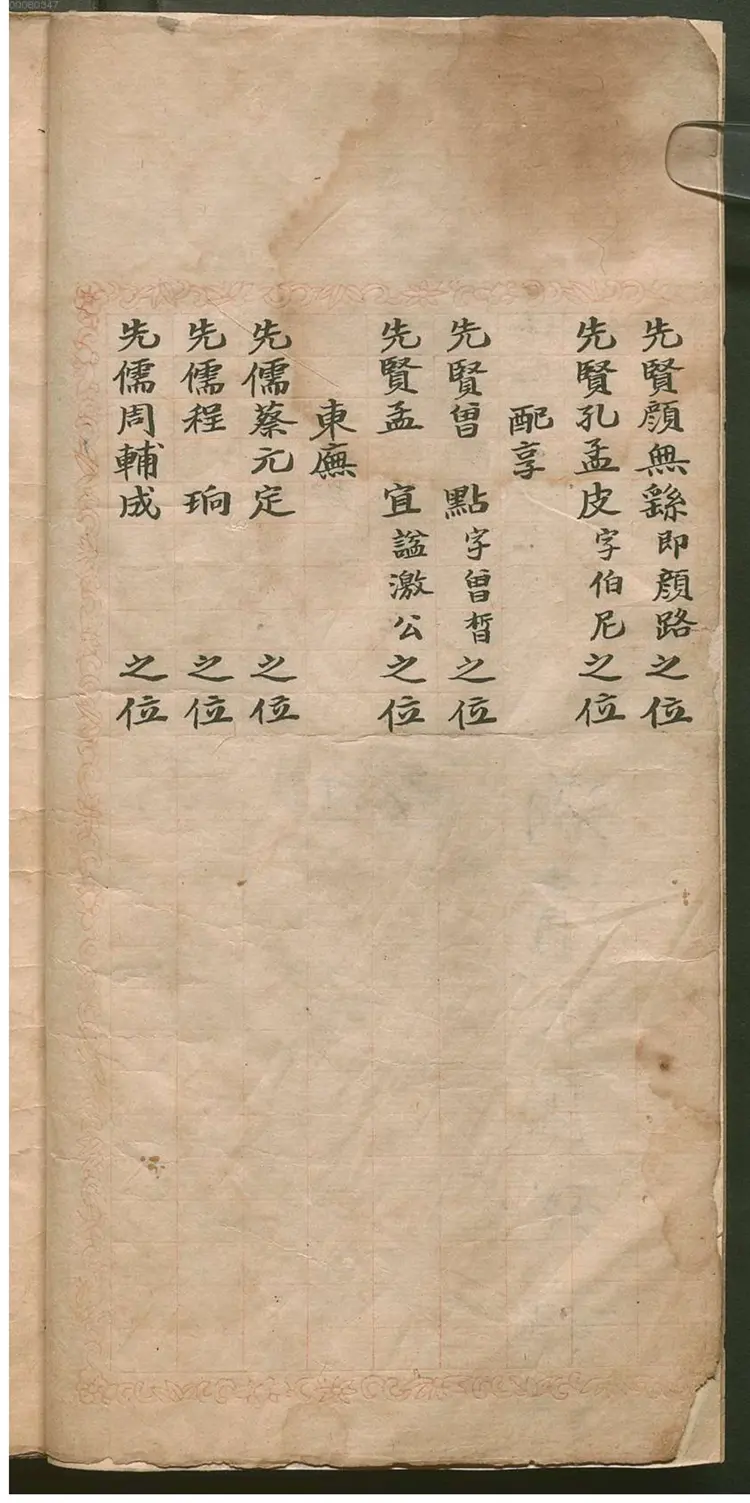 00080347
先賢顔無繇即顔路之位
先賢孔孟皮字伯尼之位
配享
先賢曽點字曽晳之位
先賢孟宜諡激公之位
東廡
先儒蔡元定之位
先儒程珦之位
先儒周輔成之位